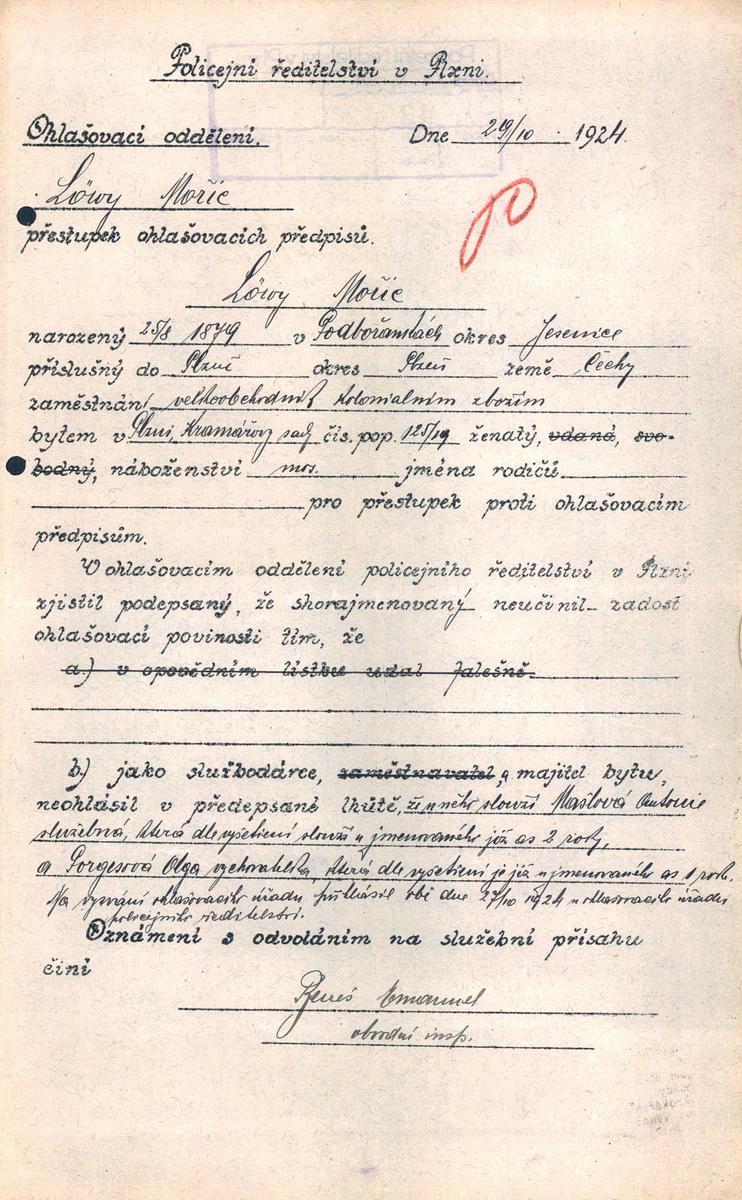 Policejní ředitelství v Plzni.
Ohlašovací oddělení. Dne 29/10 1924.
Löwy Mořic
přestupek ohlašovacích předpisů.
Löwy Mořic
narozený 25/8 1879 v Podbořánkách okres Jesenice
příslušný do Plzně okres Plzeň země Čechy
zaměstnání velkoobchodník kolonialním zbožím
bytem v Plzni, Kramářovy sady čís. pop. 125/19 ženatý, vdaná, svo-
bodný, náboženství mos. jména rodičů
pro přestupek proti ohlašovacím
předpisům.
V ohlašovacím oddělení policejního ředitelství v Plzni
zjistil podepsaný, že shorajmenovaný neučinil zadost
ohlašovací povinosti tím, že
a.) v opovědním lístku udal falešně
b.) jako služodárce, zaměstnavatel, a majitel bytu,
neohlásil v předepsané lhůtě, že u něho slouží Mašlová Antonie
služebná, která dle vyšetření slouží u jmenovaného již as 2 roky,
a Porgesová Olga vychovatelka která dle vyšetření je již u jmenovaného as 1 rok.
Na vyzvání ohlašovacího úřadu přihlásil obě dne 27/10 1924 u ohlašovacího úřadu
policejního ředitelství.
Oznámení s odvoláním na služební přísahu
činí
Beneš Emanuel
obvodní insp.